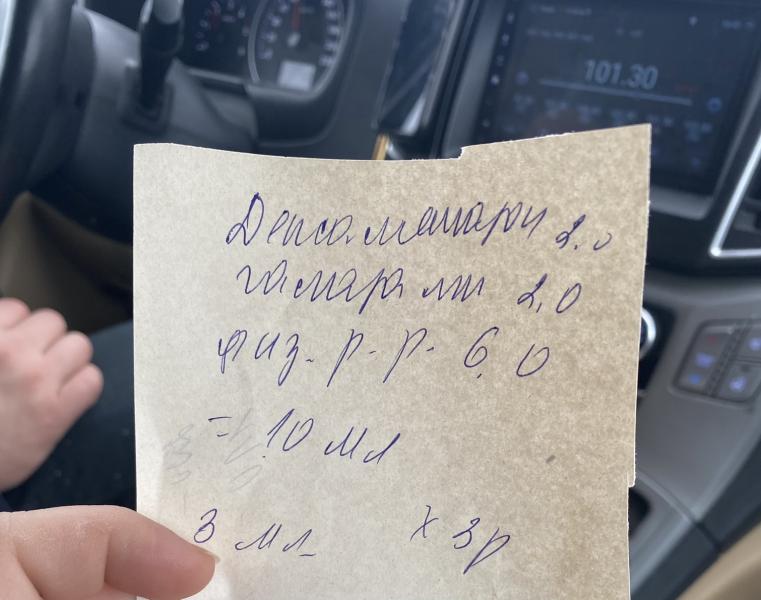 101.30
Дексаметарон 2.0
гамарали 2,0
физ. р-р- 6.0
= 10 мл
3 мл х 3р